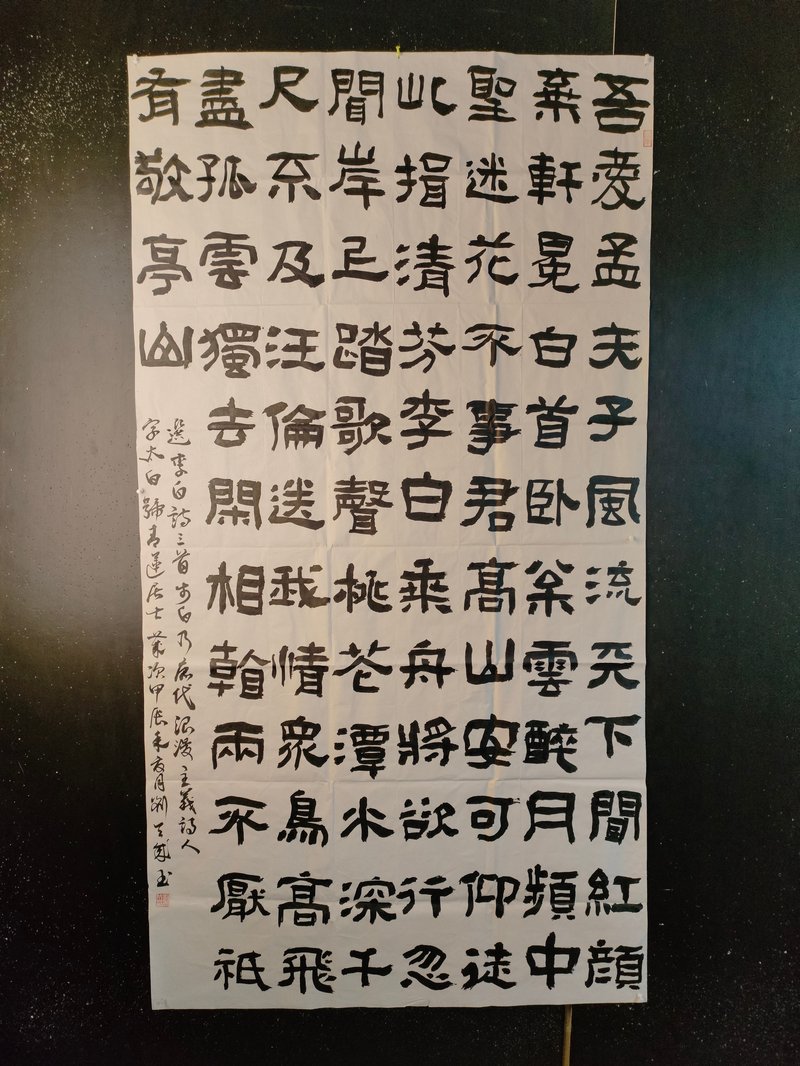 吾愛孟夫子風流天下聞紅顔
棄軒冕白首卧枀雲醉月頻中
聖迷花不事君高山安可仰徒
此揖清芬李白乘舟將欲行忽
聞岸上踏歌聲桃花潭水深千
尺不及汪倫送我情衆鳥高飛
盡孤雲獨去閑相看兩不厭祇
有敬亭山
選李白詩三首李白乃唐代浪漫主義詩人
字太白號青蓮居士歲次甲辰年